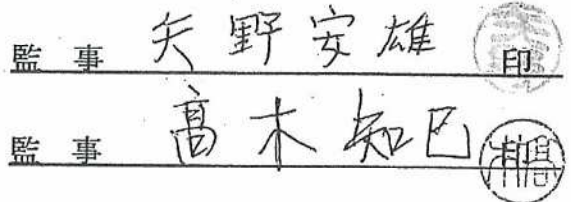 監事 矢野安雄 印
監事 髙木知巳 印